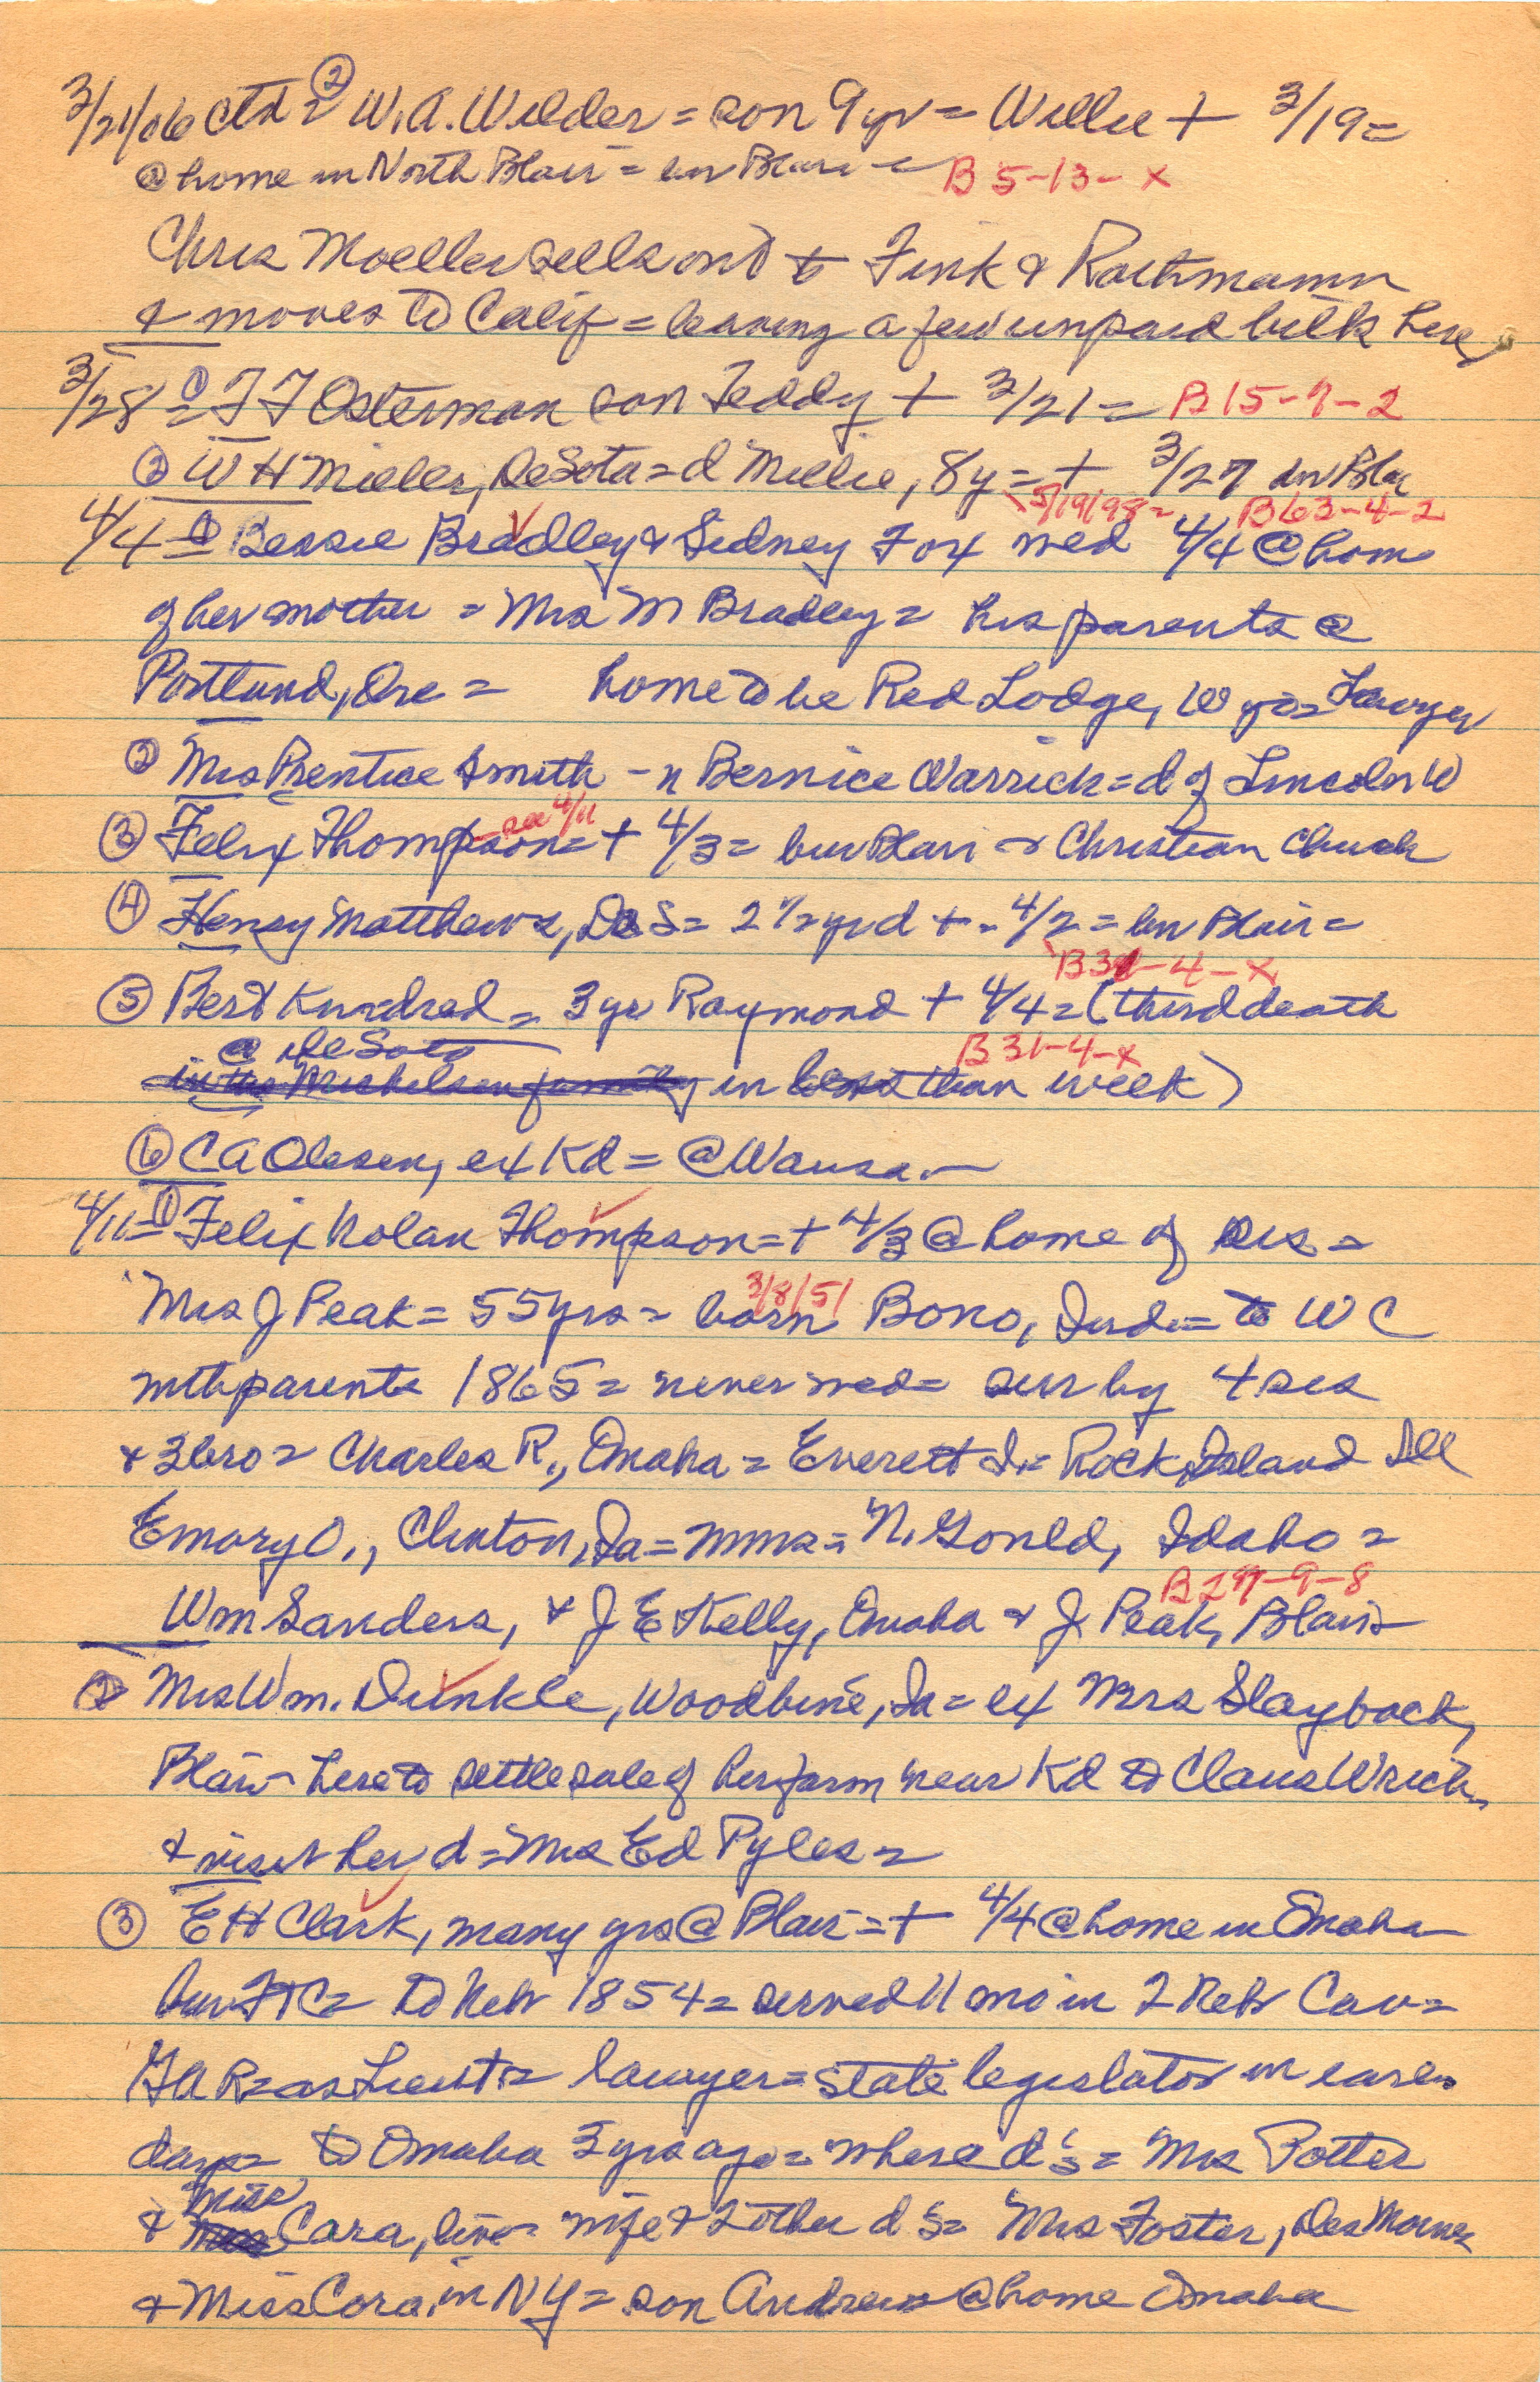 3/21/06 ctd = ② W.A. Wilder = son 9 yr = Willie + 3/19 =
@ home in North Blair = bur Blair = B 5-13-x
Chris Moeller sells out to Fink & Rathmann
& moves to Calif = leaving a few unpaid bills here
3/28 = ① F F Osterman son Teddy + 3/21 = B 15-7-2
② W H Miller, DeSota = d Millie, 8y = + 3/27 bur Blair
5/19/98 = B 63-4-2
4/4 = ① Bessie Bradley & Sidney Fox wed 4/4 @ home
of her mother = Mrs M Bradley = his parents @
Portland, Ore = home to be Red Lodge, Wyo = Lawyer
② Mrs Prentice Smith - n Bernice Warrick = d of Lincoln W
see 4/11
③ Felix Thompson = + 4/3 = bur Blair = Christian Church
④ Henry Matthews, DeS = 2 1/2 yr d + 4/2 = bur Blair =
B 31-4-x
⑤ Bert Kindred = 3 yr Raymond + 4/4 = (third death
@ DeSoto B 31-4-x
in the Mickelsen family in less than week)
⑥ C A Olesen, ex Kd = @ Wausa
4/11 = ① Felix Nolan Thompson = + 4/3 @ home of sis =
Mrs J Peak = 55 yrs = born 3/8/51 Bono, Ind = to W C
with parents 1865 = never wed = sur by 4 sis
& 3 bro = Charles R., Omaha = Everett I. = Rock Island Ill
Emory O., Clinton, Ia = mms = N. Gould, Idaho =
B 27-9-8
Wm Sanders, & J E Kelly, Omaha & J Peak, Blair
② Mrs Wm. Dunkle, Woodbine, Ia = ex Mrs Slayback,
Blair - here to settle sale of her farm near Kd to Claus Wrich
& visit her d = Mrs Ed Pyles =
③ E H Clark, many yrs @ Blair = + 4/4 @ home in Omaha
bur Ft C = to Neb 1854 = served 11 mo in 2 Neb Cav =
GAR = as Lieut = lawyer = state legislator in early
days = to Omaha 3 yrs ago = where d's = Mrs Potter
& Miss Cara, live = wife & 2 other d's = Mrs Foster, Des Moines
& Miss Cora, in NY = son Andrew @ home Omaha